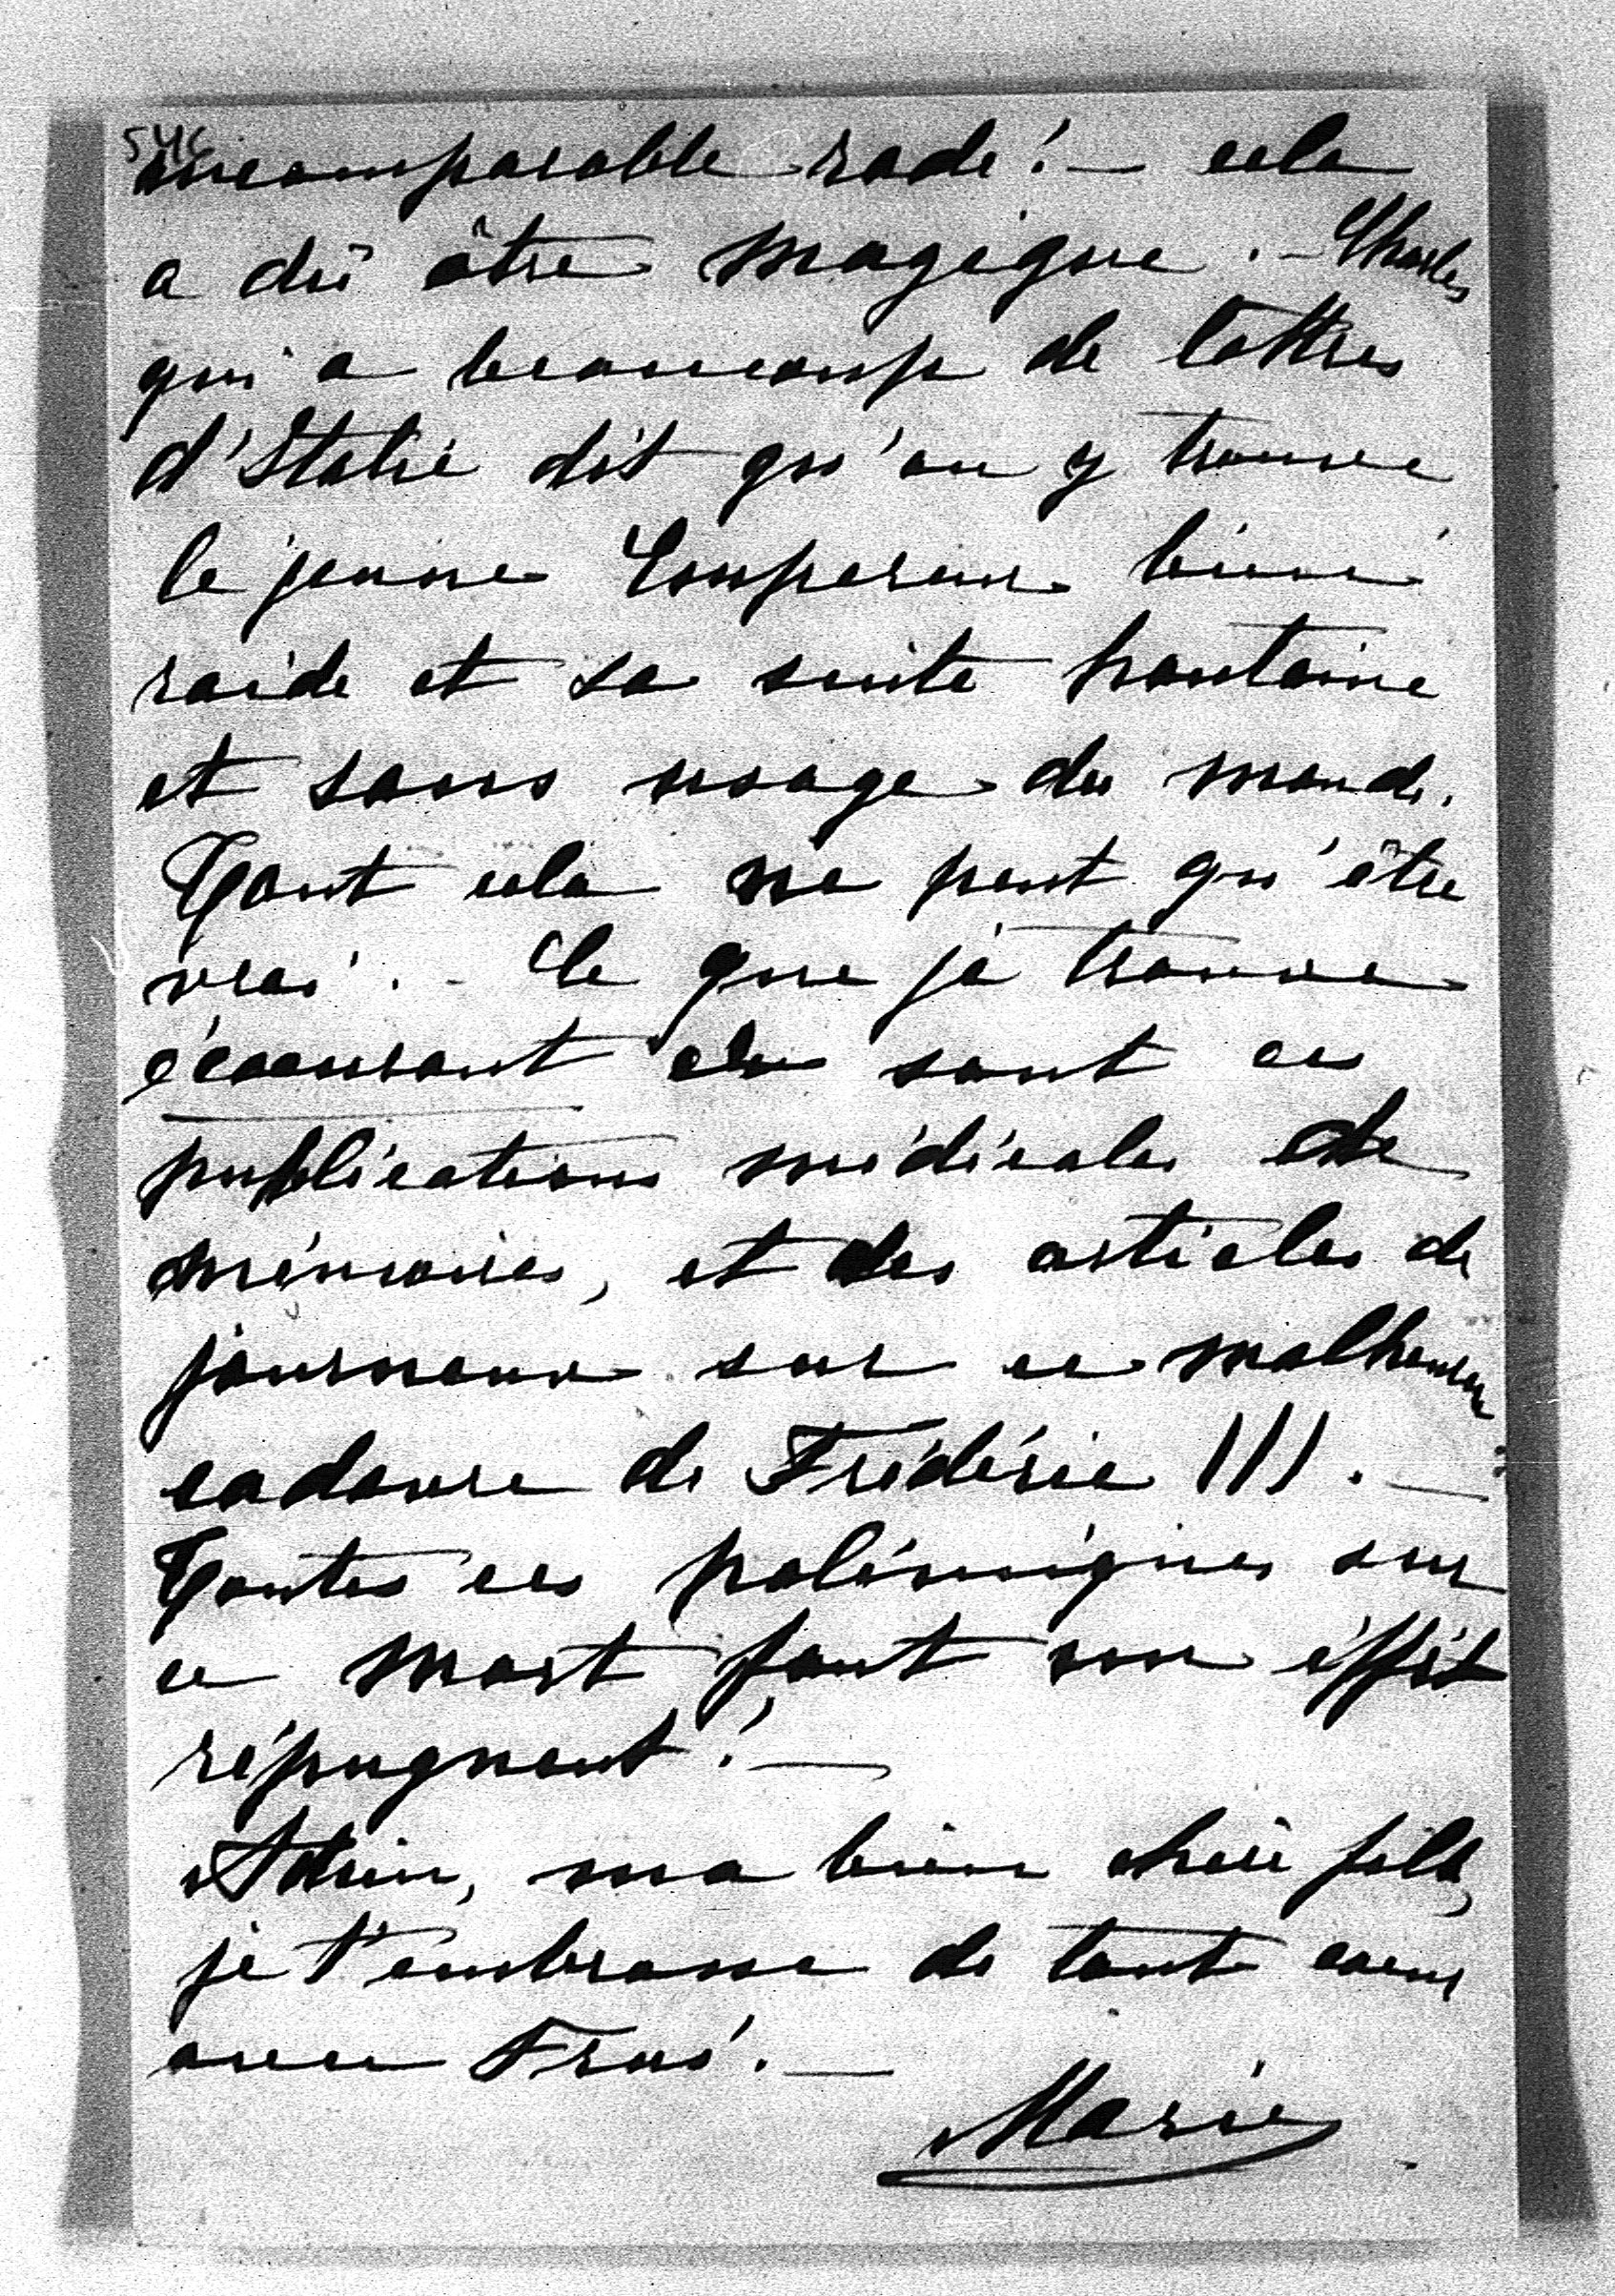 546
incomparable rade! — cela
a dû être magique. — Charles
qui a beaucoup de lettres
d'Italie dit qu'on y trouve
le jeune Empereur bien
raide et sa suite hautaine
et sans usage du monde.
Tout cela ne peut qu'être
vrai. — Ce que je trouve
écœurant ce sont ces
publications médicales de
mémoires, et des articles de
journaux sur ce malheureux
cadavre de Frédéric III. —
Toutes ces polémiques sur
ce mort font un effet
répugnant! —
Adieu, ma bien chère fille,
je t'embrasse de tout cœur
avec
Marie